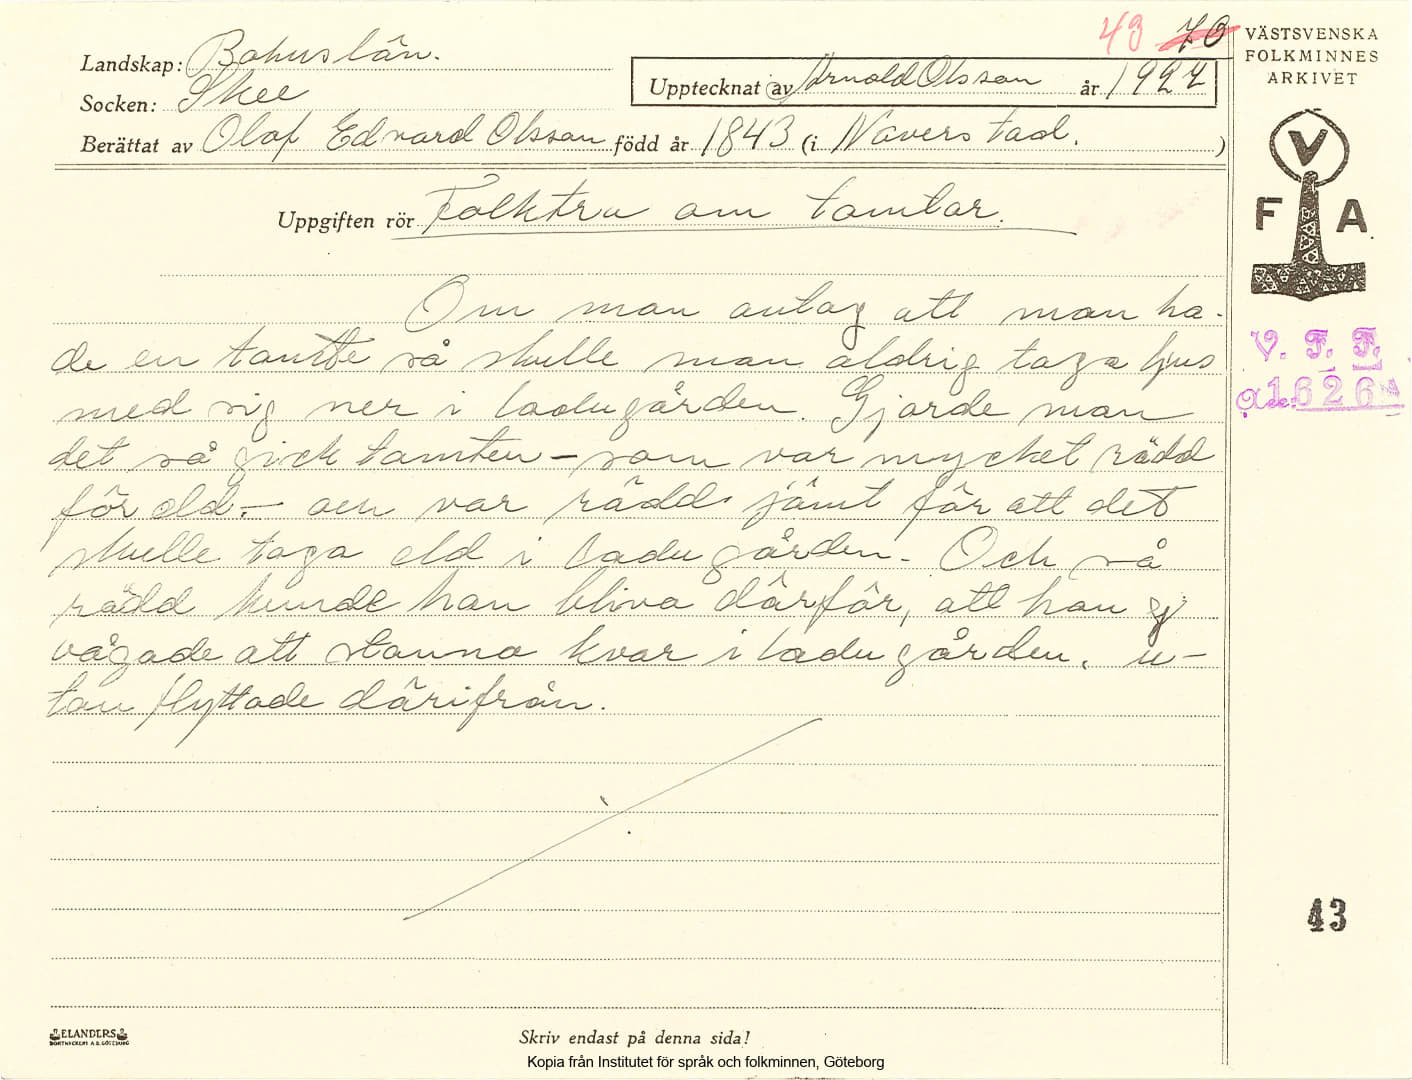 43 70
VÄSTSVENSKA
FOLKMINNES
ARKIVET
Landskap: Bohuslän.
Upptecknat av Arnold Olsson år 1927
Socken: Skee
Berättat av Olof Edvard Olsson född år 1843 (i Naverstad. )
Uppgiften rör Folktro om tomtar.
V
F A
Om man antog att man ha-
de en tomte så skulle man aldrig taga ljus
med sig ner i ladugården. Gjorde man
det så gick tomten – som var mycket rädd
för eld. – och var rädd jämt för att det
skulle taga eld i ladugården. Och så
rädd kunde han bliva därför, att han ej
vågade att stanna kvar i ladugården, u-
tan flyttade därifrån.
V. F. F.
1626
43
ELANDERS
BOKTRYCKERI A.B. GÖTEBORG
Skriv endast på denna sida!
Kopia från Institutet för språk och folkminnen, Göteborg